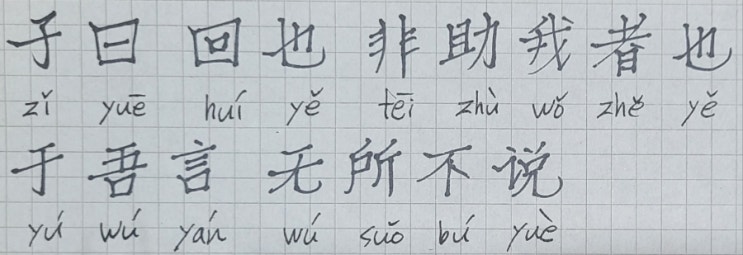 子曰 回也 非助我者也
zǐ yuē huí yě fēi zhù wǒ zhě yě
于吾言 无所不说
yú wú yán wú suǒ bú yuè